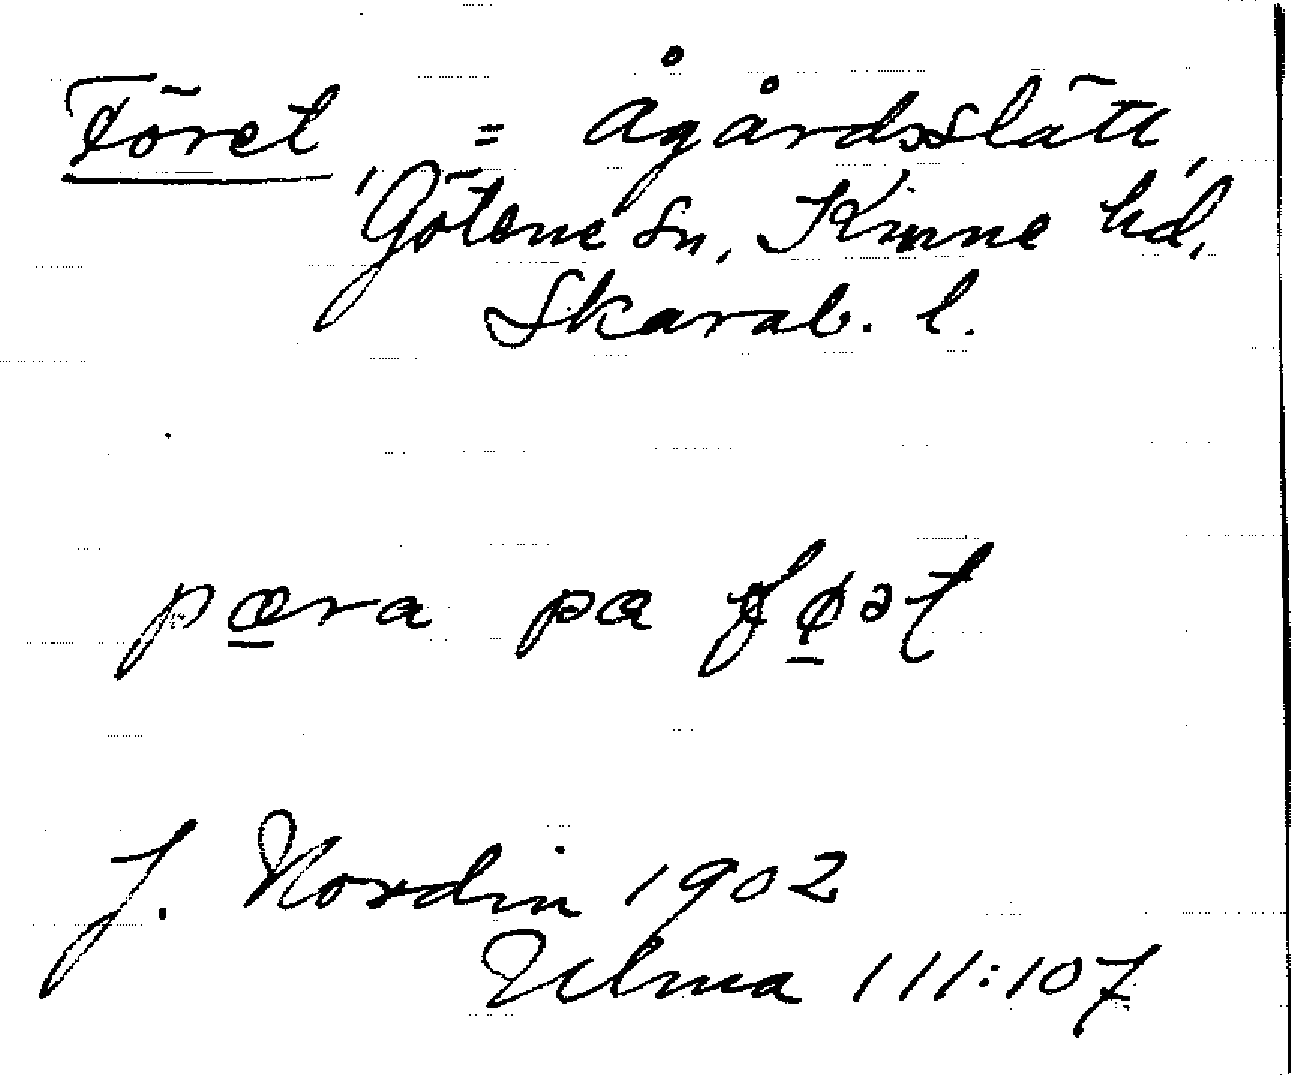 Föret = Ågårdsslätt,
Götene sn, Kinne hd,
Skarab. l.
pæra pa føət
J. Nordin 1902
Ulma 111:107